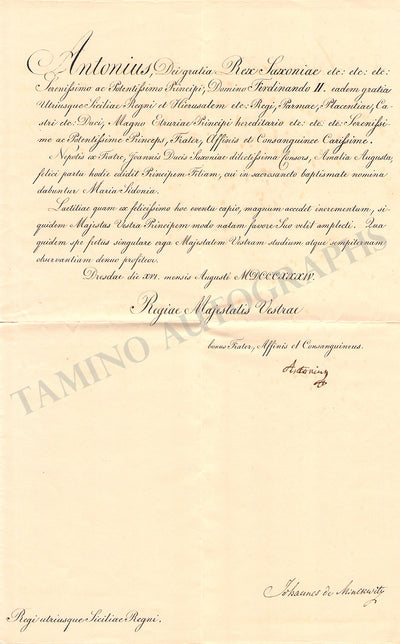 Antonius, Dei gratia Rex Saxoniae etc: etc: etc:
Serenissimo ac Potentissimo Principi, Domino Ferdinando II. eadem gratia
Utriusque Siciliae Regni et Hierusalem etc: Regi, Parmae, Placentiae, Ca-
stri etc: Duci, Magno Etruriae Principi hereditario etc: etc: etc: Serenissi-
me ac Potentissime Princeps, Frater, Affinis et Consanguinee Carissime.
Nepotis ex Fratre, Joannis Ducis Saxoniae dilectissima Consors, Amalia Augusta,
felici partu hodie edidit Principem Filiam, cui in sacrosancto baptismate nomina
dabuntur Maria Sidonia.
Laetitiae quam ex felicissimo hoc eventu capio, magnum accedet incrementum, si
quidem Majestas Vestra Principem modo natam favore Suo velit amplecti. Qua
quidem spe fretus singulare erga Majestatem Vestram studium atque sempiternam
observantiam denuo profiteor.
Dresdae die XVI. mensis Augusti MDCCCXXXIV.
Regiae Majestatis Vestrae
bonus Frater, Affinis et Consanguineus.
Antonius
TAMINO AUTOGRAPHS
Johannes de Minckwitz
Regi utriusque Siciliae Regni.